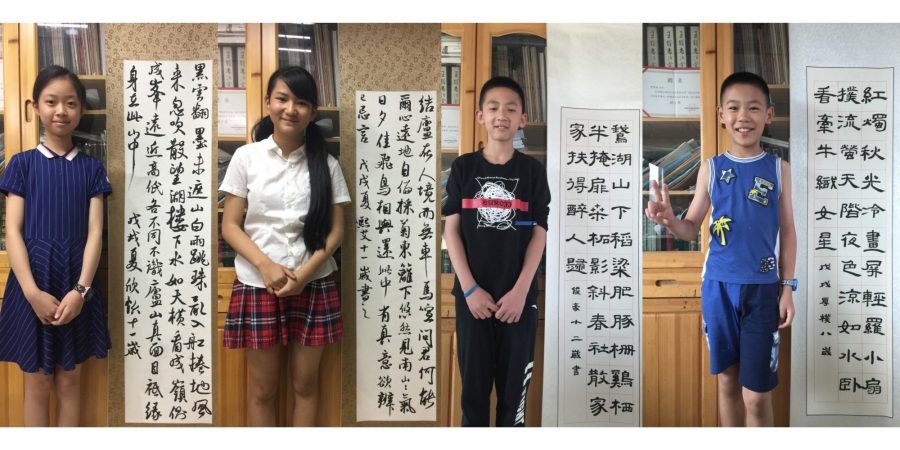 黑雲翻墨未遮山白雨跳珠亂入船捲地風
来忽吹散望湖樓下水如天橫看成嶺側
成峯遠近高低各不同不識廬山真面目祇緣
身在此山中 戊戌夏欣十一歲
結廬在人境而無車馬喧問君何能
爾心遠地自偏採菊東籬下悠然見南山々氣
日夕佳飛鳥相與還此中有真意欲辨
已忘言 戊戌夏熙艾十一歲書
鵞湖山下稻粱肥豚柵鷄栖
半掩扉桑柘影斜春社散家
家扶得醉人歸 俊豪十二歲書
紅燭秋光冷畫屏輕羅小扇
撲流螢天階夜色涼如水卧
看牽牛織女星 戊戌粵樸八歲
E
33